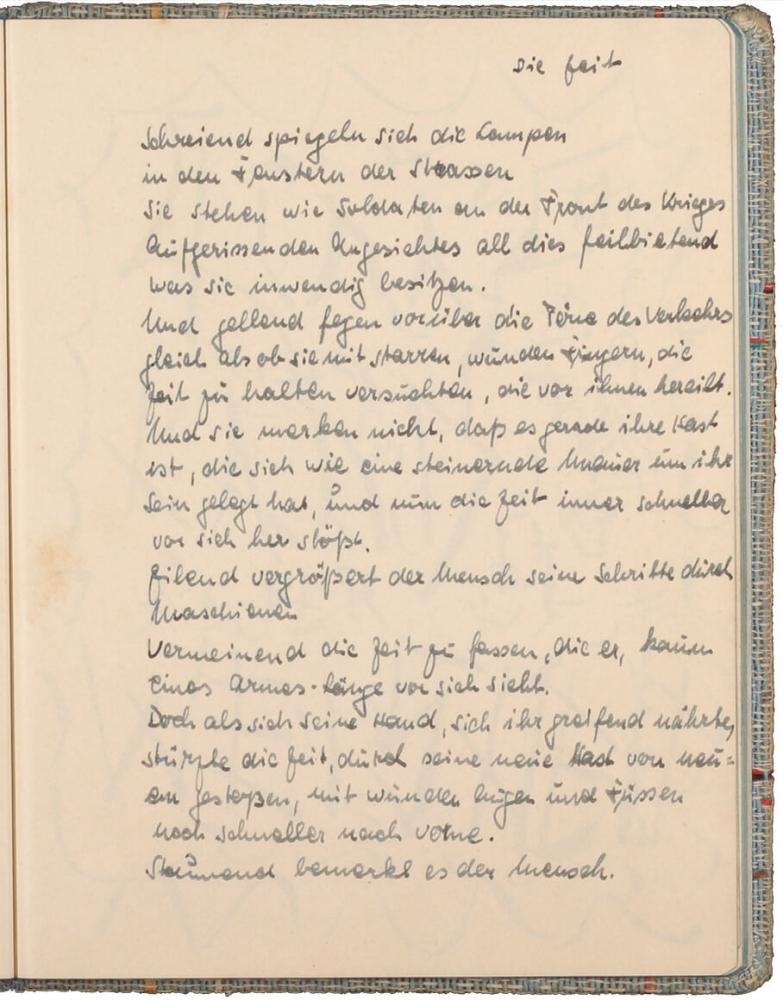 Die Zeit
Schreiend spiegeln sich die Lampen
in den Fenstern der Strassen
Sie stehen wie Soldaten an der Front des Krieges
Aufgerissenden Angesichtes all dies feilbietend
was sie inwendig besitzen.
Und gellend fegen vorüber die Töne des Verkehrs
gleich als ob sie mit starren, wunden Fingern, die
Zeit zu halten versuchten, die vor ihnen hereilt.
Und sie merken nicht, daß es gerade ihre Hast
ist, die sich wie eine steinernde Mauer um ihr
Sein gelegt hat, und nun die Zeit immer schneller
vor sich her stößt.
Eilend vergrößert der Mensch seine Schritte durch
Maschienen
Vermeinend die Zeit zu fassen, die er, kaum
eines Armes-länge vor sich sieht.
Doch als sich seine Hand, sich ihr greifend nährte,
stürzte die Zeit, durch seine neue Hast von neu=
em gestoßen, mit wunden Augen und Füssen
noch schneller nach vorne.
Staunend bemerkt es der Mensch.